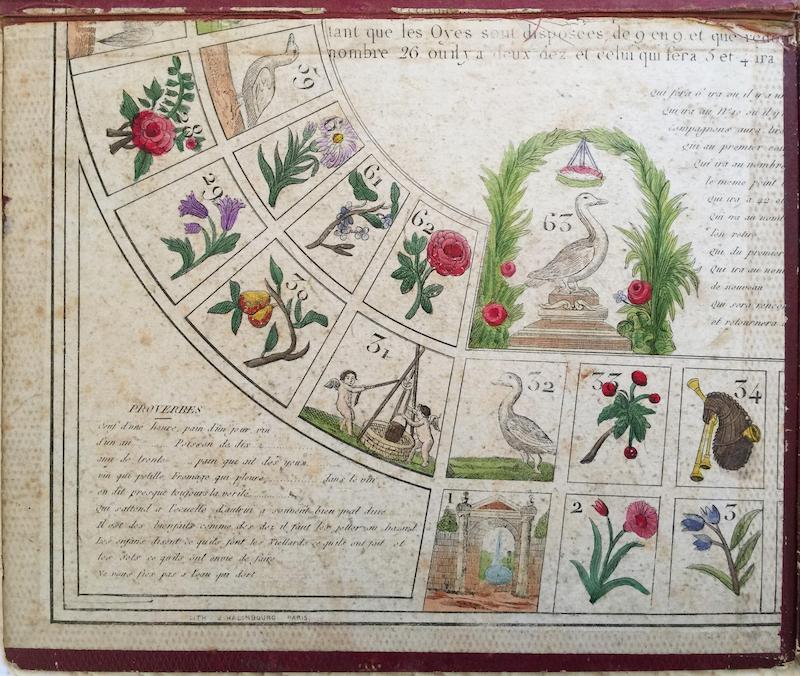 tant que les Oyes sont disposées de 9 en 9. et que
nombre 26 ou il y a deux dez et celui qui fera 5 et 4 ira
qui fera 6 ira ou il y a un
Qui ira au
compagnons aura
Qui au premier
Qui ira au nombre
le meme point
Qui ira a 42
Qui ira au
l'on retire
Qui du premier
Qui ira au
de nouveau
Qui sera
et retournera
59
28
60
29
61
62
63
30
31
32
33
34
1
2
3
PROVERBES
oeuf d'une heure, pain d'un jour vin
d'un an Poisson de dix
ami de trente pain qui ait des yeux
vin qui petille Fromage qui pleure dans le vin
on dit presque toujours la verité
Qui sattend a l'ecuelle d'autrui a souvent bien mal diné
Il est des bienfaits comme des dez il faut les jetter au hazard
Les enfans disent ce qu'ils font les Viellards ce qu'ils ont fait et
les Sots ce qu'ils ont envie de faire
Ne vous fiez pas a l'eau qui dort
LITH PARIS